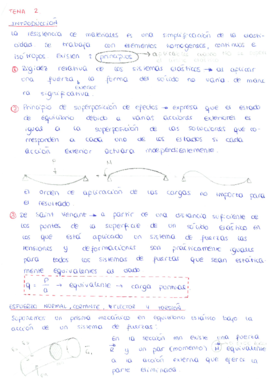 TEMA 2
INTRODUCCIÓN
La resistencia de materiales es una simplificación de la reali-
dad. Se trabaja con elementos homogéneos, continuos e
isótropos. Existen 3 principios
① Rigidez relativa de los sistemas elásticos → al aplicar
una fuerza exterior la forma del sólido no varía de mane-
ra significativa.
② Principio de superposición de efectos → expresa que el estado
de equilibrio debido a varias acciones exteriores es
igual a la superposición de las soluciones que co-
rresponden a cada uno de los estados si cada
acción exterior actuara independientemente.
el orden de aplicación de las cargas no importa para el
resultado
③ De Saint Venant → a partir de una distancia suficiente de
los puntos de la superficie de un sólido elástico en
los que está aplicado un sistema de fuerzas las
tensiones y deformaciones son prácticamente iguales
para todos los sistemas de fuerzas que sean estática
mente equivalentes al dado
q = P/a → equivalente → carga puntual
ESFUERZO NORMAL, CORTANTE, FLECTOR Y TORSOR.
Suponemos un prisma mecánico en equilibrio estático bajo la
acción de un sistema de fuerzas:
En la sección mn existe una fuerza
R y un par (momento) M equivalente
a la acción externa que ejercía la
parte eliminada